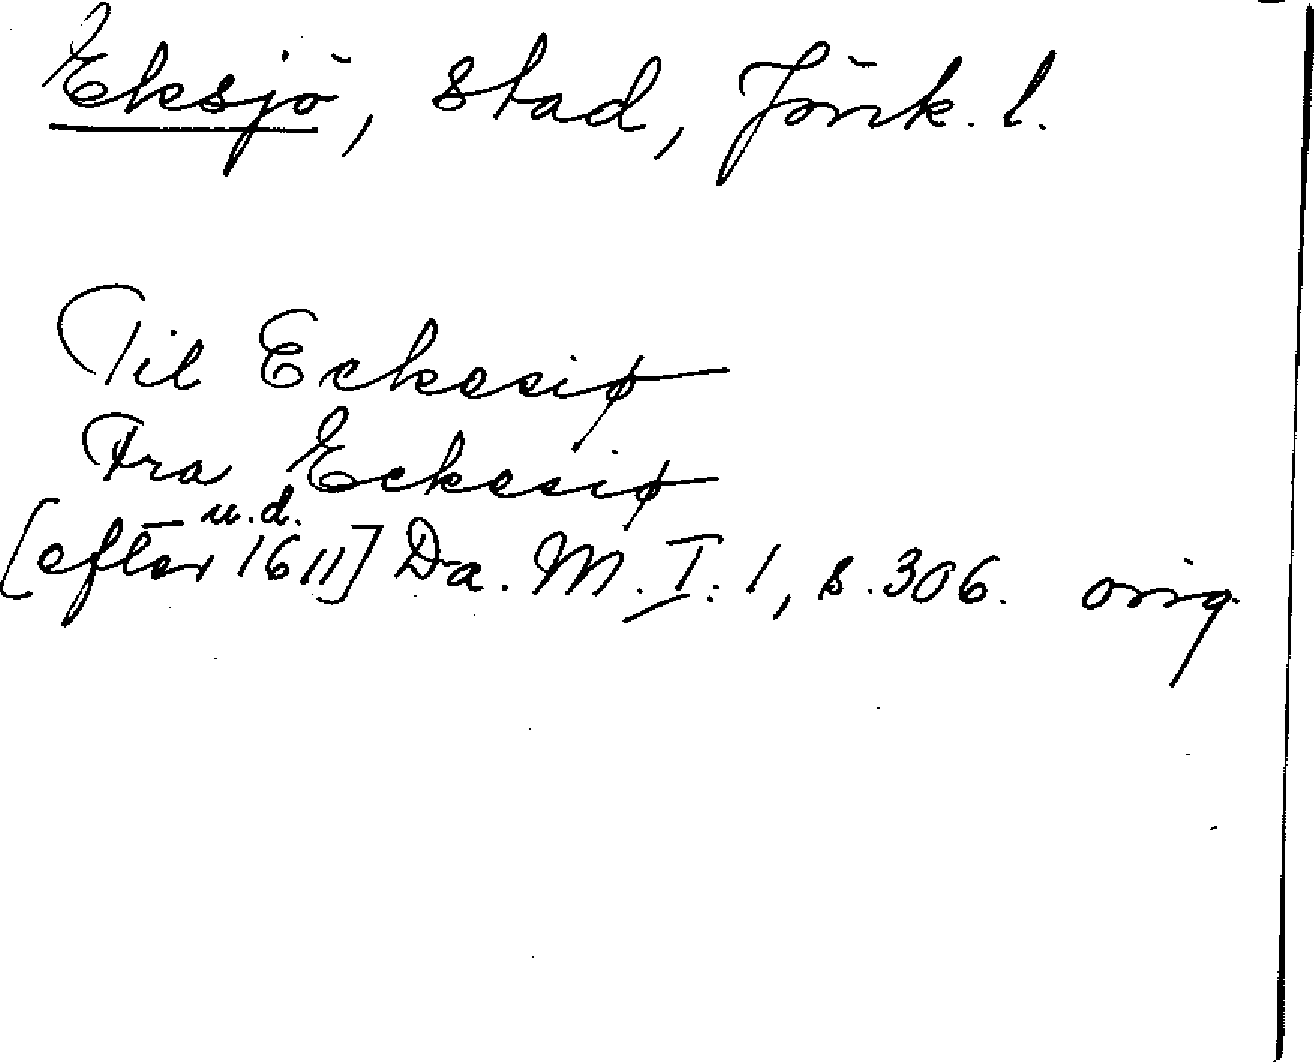 Eksjö, stad, Jönk. l.
Til Eckesiø
Fra Eckesiø
u.d.
[efter 1611] Da. M. I. 1, s. 306. orig